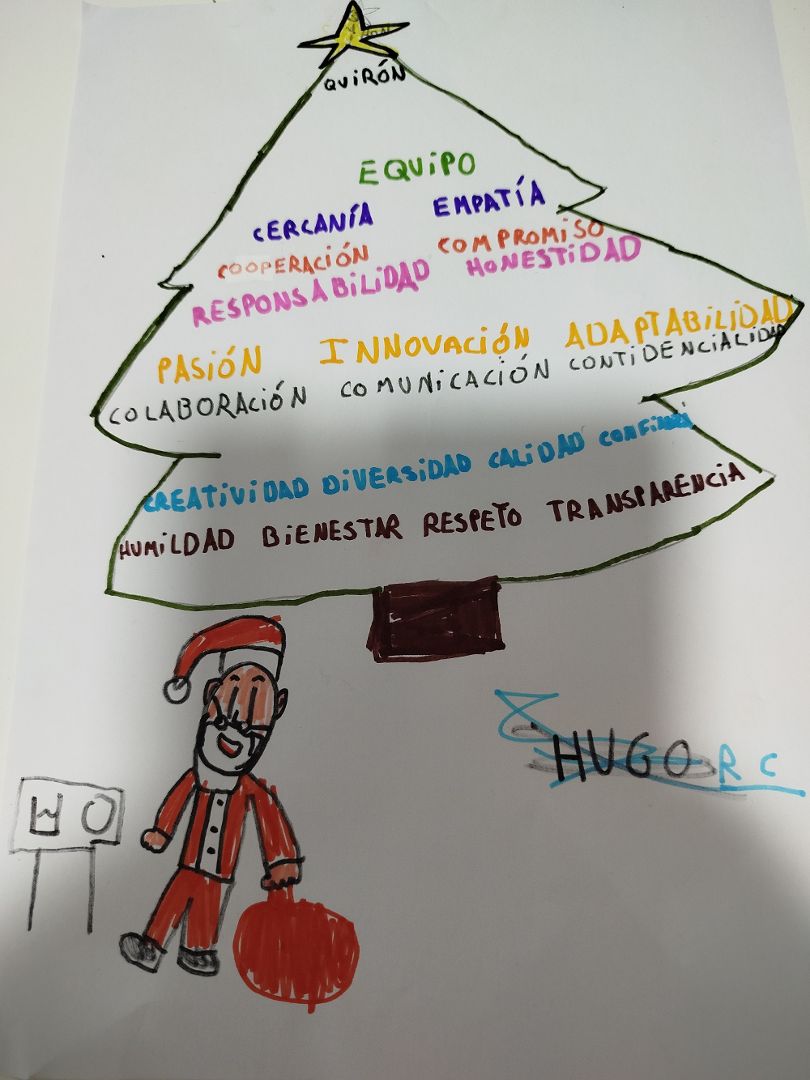 QUIRÓN
EQUIPO
CERCANÍA EMPATÍA
COOPERACIÓN COMPROMISO
RESPONSABILIDAD HONESTIDAD
PASIÓN INNOVACIÓN ADAPTABILIDAD
COLABORACIÓN COMUNICACIÓN CONTIDENCIALIDAD
CREATIVIDAD DIVERSIDAD CALIDAD
HUMILDAD BIENESTAR RESPETO TRANSPARENCIA
HUGO R C